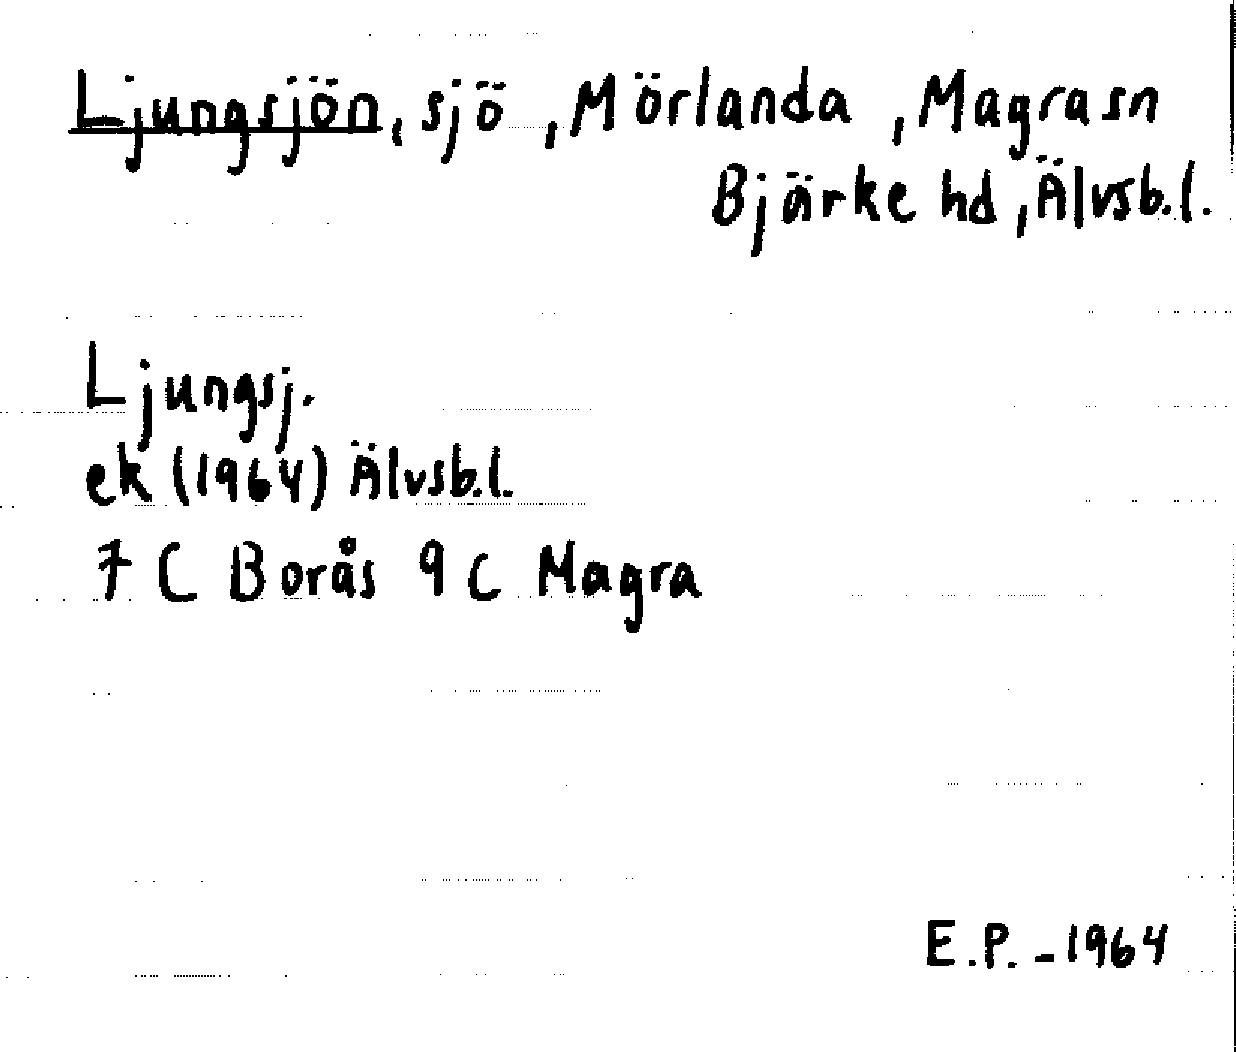 Ljungsjön, sjö, Mörlanda, Magra sn
Bjärke hd, Älvsb.l.
Ljungsj.
ek (1964) Älvsb.l.
7 C Borås 9 c Magra
E.P. - 1964